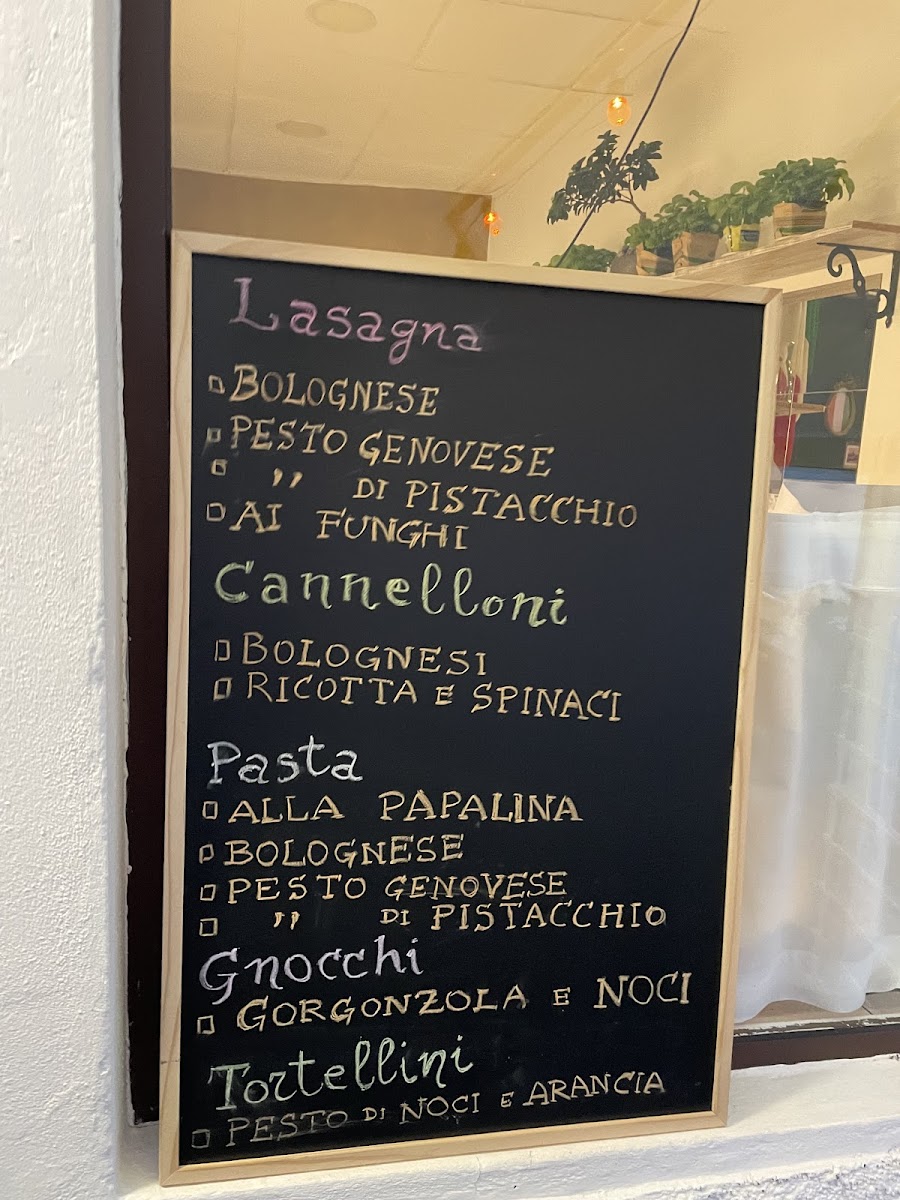 Lasagna
BOLOGNESE
PESTO GENOVESE
” DI PISTACCHIO
AI FUNGHI
Cannelloni
BOLOGNESI
RICOTTA E SPINACI
Pasta
ALLA PAPALINA
BOLOGNESE
PESTO GENOVESE
” DI PISTACCHIO
Gnocchi
GORGONZOLA E NOCI
Tortellini
PESTO DI NOCI E ARANCIA